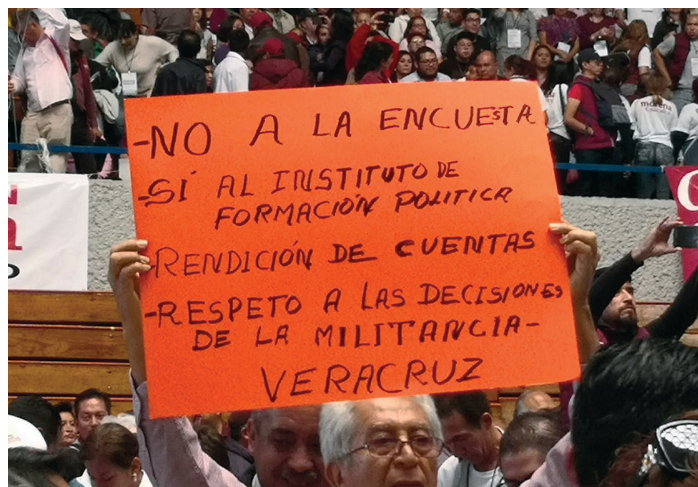 -NO A LA ENCUESTA
-SÍ AL INSTITUTO DE
FORMACIÓN POLITICA
-RENDICIÓN DE CUENTAS
-RESPETO A LAS DECISIONES
DE LA MILITANCIA-
VERACRUZ
morena